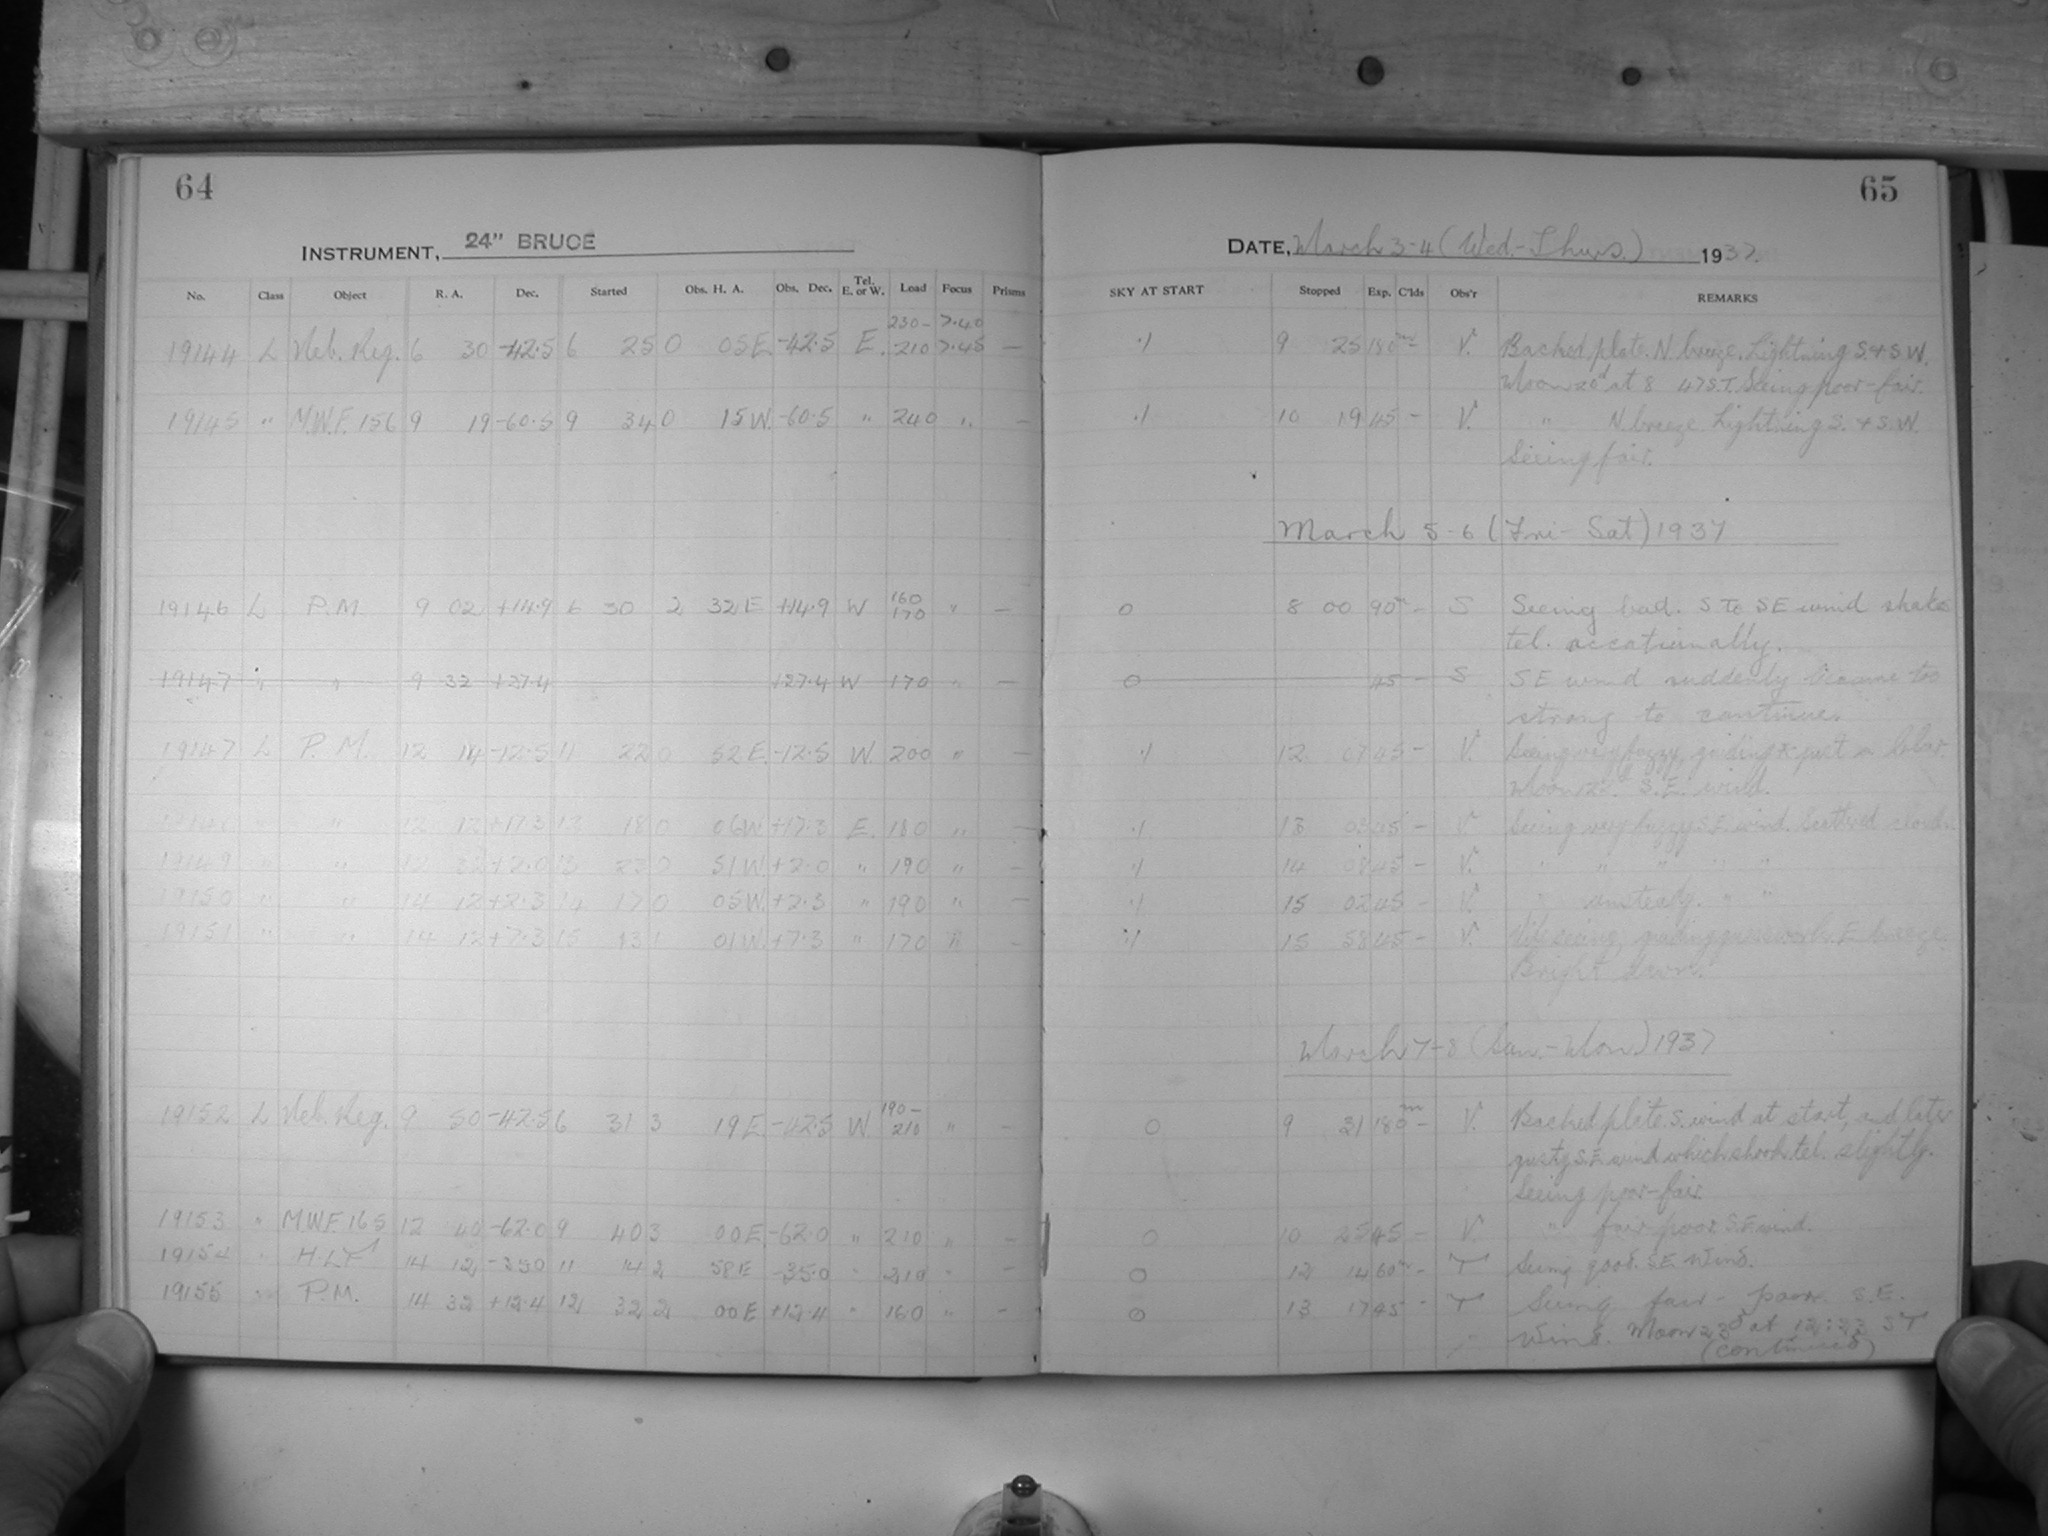 64
65
INSTRUMENT, 24" BRUCE
DATE, March 3-4 (Wed.-Thurs.) 1937.
No. Class Object R. A. Dec. Started Obs. H. A. Obs. Dec. Tel. E. or W. Load Focus Prisms SKY AT START Stopped Exp. C'lds Obs'r REMARKS
230- 7.40
19144 L Neb. Reg. 6 30 -42.5 6 25 0 05E -42.5 E. 210 7.45 — 9 25 180m - V. Backed plate. N. breeze. Lightning S. & S.W.
Moon 20d at 8 47 S.T. Seeing poor-fair.
19145 " M.W.F. 156 9 19 -60.5 9 34 0 15W. -60.5 " 240 " — 10 19 45 - V. " N. breeze. Lightning S. & S.W.
Seeing fair.
March 5-6 (Fri-Sat) 1937
19146 L P.M. 9 02 +14.9 6 30 2 32E +14.9 W 160 170 " — 0 8 00 90m - S Seeing bad. S to SE wind shakes
tel. occationally.
19147 " " 9 32 +27.4 +27.4 W 170 " — 0 45 - S SE wind suddenly became too
strong to continue.
19147 L P.M. 12 14 -12.5 11 22 0 52E. -12.5 W. 200 " — 12 07 45 - V. Seeing very fuzzy, guiding * just a blur
Moon 22d. S.E. wind.
12 12 +17.3 13 18 0 06W. +17.3 E. 180 " — 13 03 45 - V. Seeing very fuzzy S.E. wind. Scattered clouds.
19149 " " +2.0 13 23 0 51W. +2.0 " 190 " — 14 08 45 - V. " " " " "
19150 " " 14 12 +2.3 14 17 0 05W. +2.3 " 190 " — 15 02 45 - V. " unsteady. " "
19151 " " 14 12 +7.3 15 13 1 01W. +7.3 " 170 " - 15 58 45 - V. seeing, guiding guesswork. E. breeze.
Bright dawn.
March 7-8 (Sun.-Mon.) 1937
19152 L Neb. Reg. 9 50 -42.5 6 31 3 19E. -42.5 W. 190- 210 " — 0 9 31 180m - V. Backed plate. S. wind at start, and later
gusty S.E. wind which shook tel. slightly.
Seeing poor-fair.
19153 " M.W.F. 165 12 40 -62.0 9 40 3 00E. -62.0 " 210 " — 0 10 25 45 - V. " fair-poor S.E. wind.
19154 " 14 12 -35.0 11 14 2 58E -35.0 " 210 " - 0 12 14 60m - T Seeing good. SE Wind.
19155 " P.M. 14 32 +12.4 12 32 2 00E +12.4 " 160 " - 0 13 17 45 - T Seeing fair - poor. S.E.
Wind. Moon 23d at 12:23 ST
(continued)